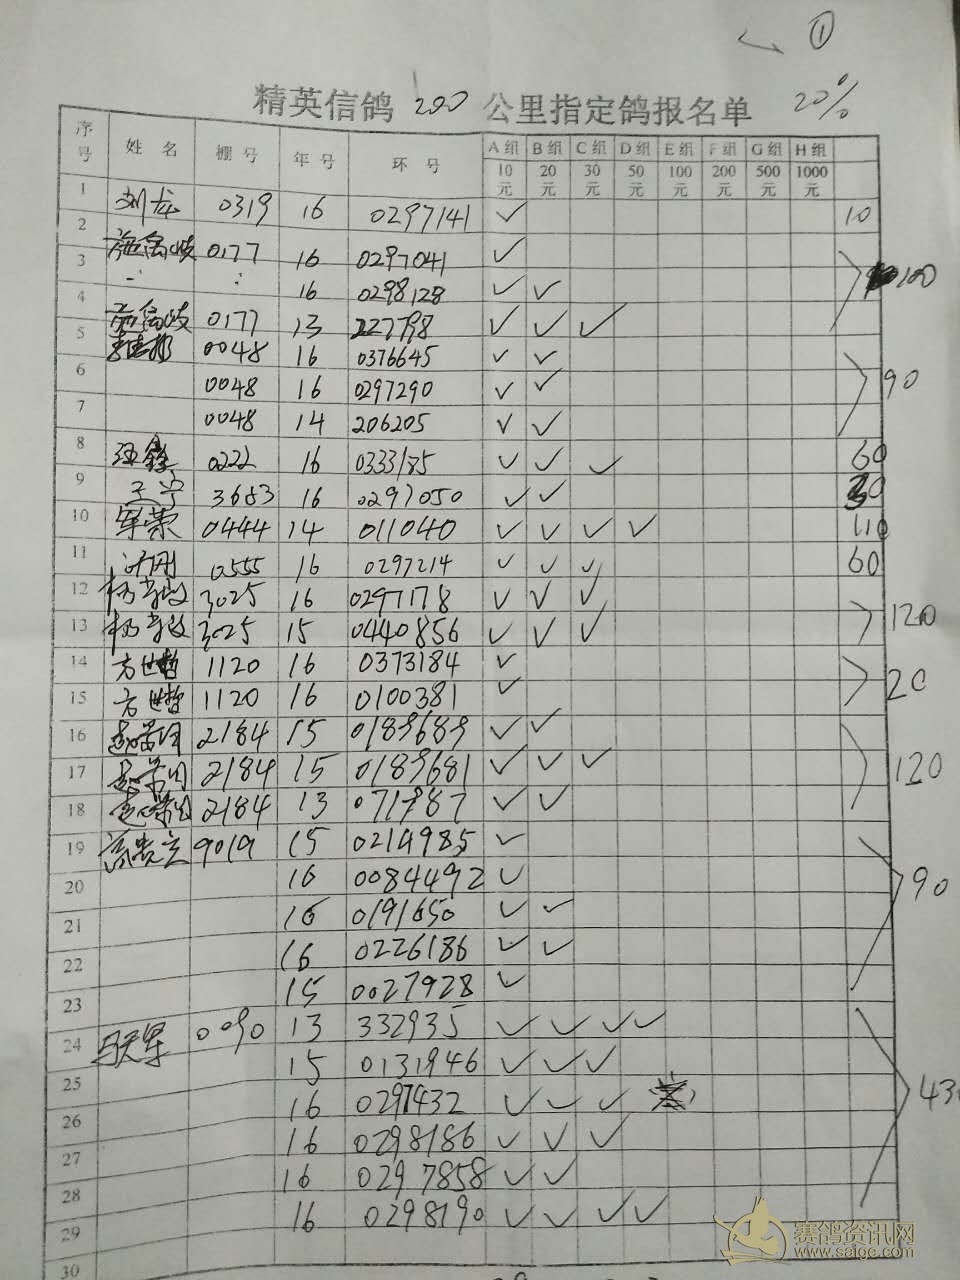 ①
精英信鸽 200 公里指定鸽报名单 20%
序号 姓名 棚号 年号 环号 A组 B组 C组 D组 E组 F组 G组 H组
10元 20元 30元 50元 100元 200元 500元 1000元
1 刘龙 0319 16 0297141 ✓ 10
2 0177 16 0297041 ✓
3 16 0298128 ✓ ✓ 100
4 0177 13 227798 ✓ ✓ ✓
5 0048 16 0376645 ✓ ✓
6 0048 16 0297290 ✓ ✓ 90
7 0048 14 206205 ✓ ✓
8 汪鑫 0222 16 0333185 ✓ ✓ ✓ 60
9 王宁 3653 16 0297050 ✓ ✓ 30
10 军荣 0444 14 011040 ✓ ✓ ✓ ✓ 110
11 0555 16 0297214 ✓ ✓ ✓ 60
12 3025 16 0297178 ✓ ✓ ✓
13 3025 15 0440856 ✓ ✓ ✓ 120
14 方世哲 1120 16 0373184 ✓
15 方世哲 1120 16 0100381 ✓ 20
16 2184 15 0189689 ✓ ✓
17 2184 15 0189681 ✓ ✓ ✓ 120
18 2184 13 071787 ✓ ✓
19 高贵立 9019 15 0214985 ✓
20 16 0084492 ✓ 90
21 16 0191650 ✓ ✓
22 16 0226186 ✓ ✓
23 15 0027928 ✓
24 马天军 0090 13 332935 ✓ ✓ ✓ ✓
25 15 0131946 ✓ ✓ ✓
26 16 0297432 ✓ ✓ ✓ 430
27 16 0298186 ✓ ✓ ✓
28 16 0297858 ✓ ✓
29 16 0298190 ✓ ✓ ✓ ✓
30
赛鸽资讯网
www.saige.com